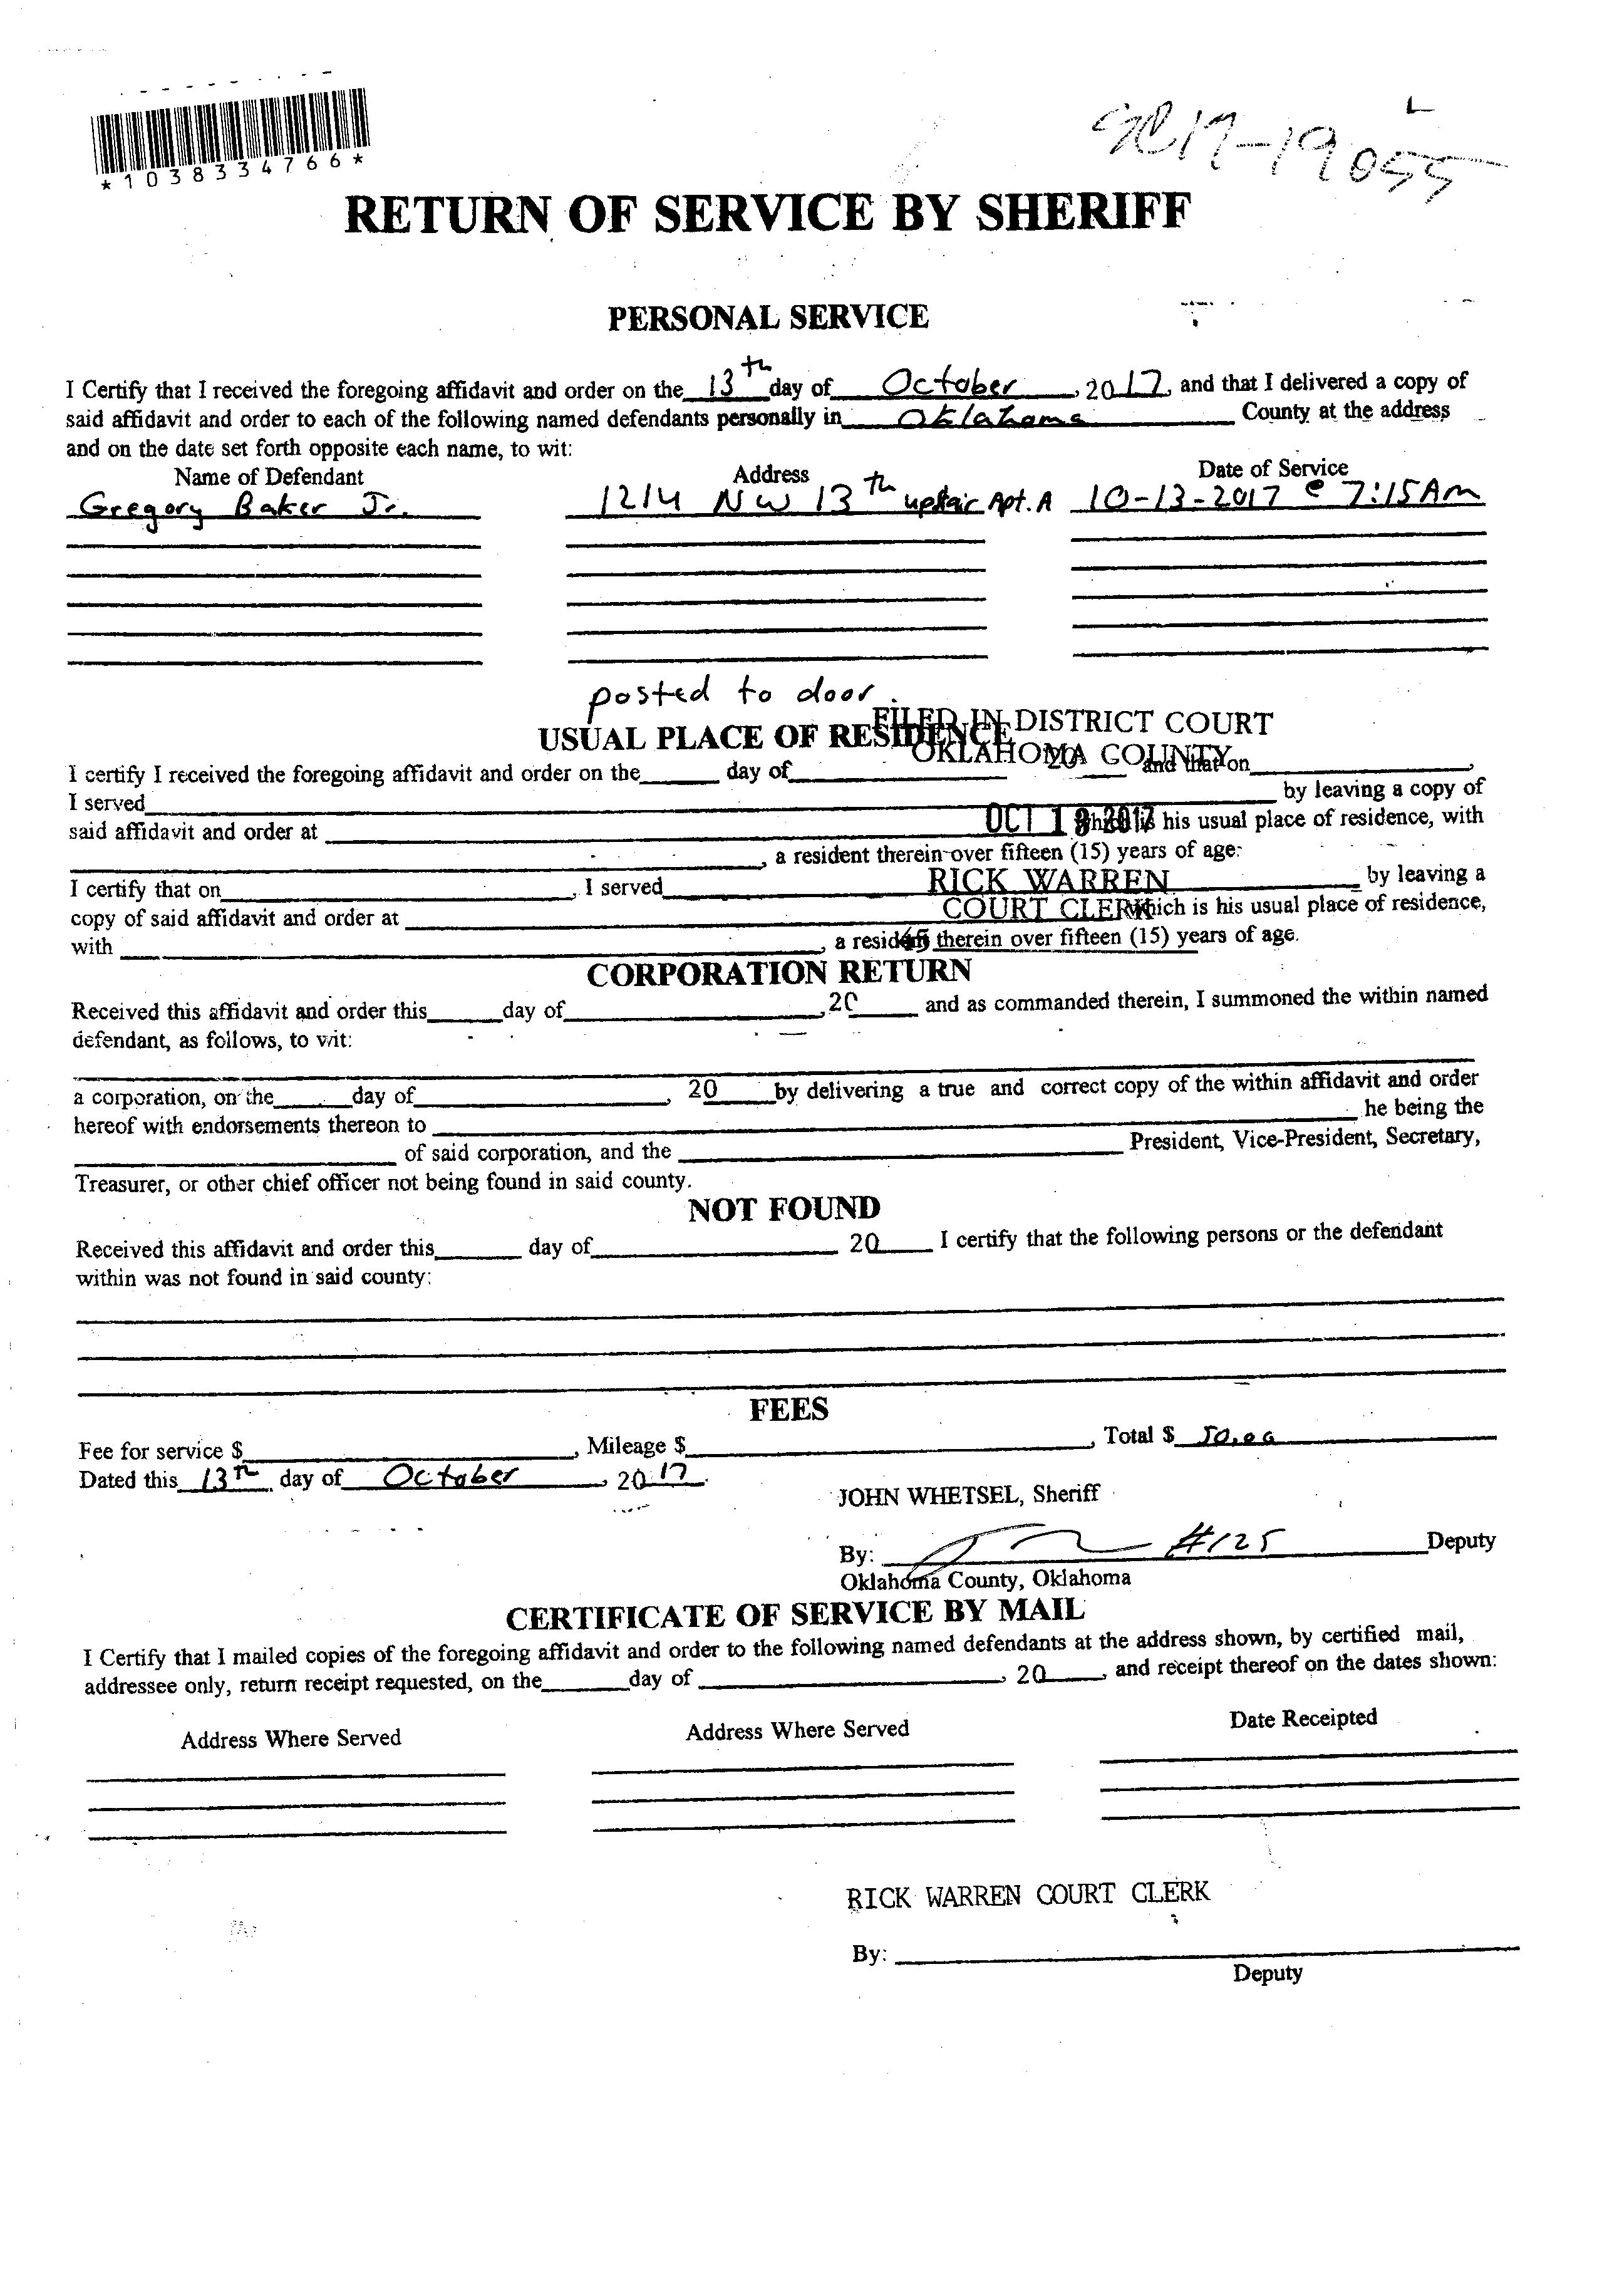 *1038334766*
SC17-19055
L
RETURN OF SERVICE BY SHERIFF
PERSONAL SERVICE
I Certify that I received the foregoing affidavit and order on the 13th day of October, 2017, and that I delivered a copy of
said affidavit and order to each of the following named defendants personally in Oklahoma County at the address
and on the date set forth opposite each name, to wit:
Name of Defendant Address Date of Service
Gregory Baker Jr. 1214 NW 13th upstair Apt. A 10-13-2017 @ 7:15 Am
posted to door.
USUAL PLACE OF RESIDENCE
FILED IN DISTRICT COURT
OKLAHOMA COUNTY
I certify I received the foregoing affidavit and order on the ______ day of ______ 20 ____ and that on ______,
I served ______ by leaving a copy of
said affidavit and order at ______ which is his usual place of residence, with
OCT 2017
______, a resident therein over fifteen (15) years of age.
I certify that on ______, I served ______ by leaving a
RICK WARREN
COURT CLERK
copy of said affidavit and order at ______ which is his usual place of residence,
with ______, a resident therein over fifteen (15) years of age.
CORPORATION RETURN
Received this affidavit and order this ______ day of ______, 20 ____ and as commanded therein, I summoned the within named
defendant, as follows, to wit:
a corporation, on the ______ day of ______, 20 ____ by delivering a true and correct copy of the within affidavit and order
hereof with endorsements thereon to ______ he being the
______ of said corporation, and the ______ President, Vice-President, Secretary,
Treasurer, or other chief officer not being found in said county.
NOT FOUND
Received this affidavit and order this ______ day of ______ 20 ____ I certify that the following persons or the defendant
within was not found in said county:
FEES
Fee for service $ ______, Mileage $ ______, Total $ 50.00
Dated this 13th day of October, 2017.
JOHN WHETSEL, Sheriff
By: ______ #125 Deputy
Oklahoma County, Oklahoma
CERTIFICATE OF SERVICE BY MAIL
I Certify that I mailed copies of the foregoing affidavit and order to the following named defendants at the address shown, by certified mail,
addressee only, return receipt requested, on the ______ day of ______, 20 ____, and receipt thereof on the dates shown:
Address Where Served Address Where Served Date Receipted
RICK WARREN COURT CLERK
By: ______
Deputy